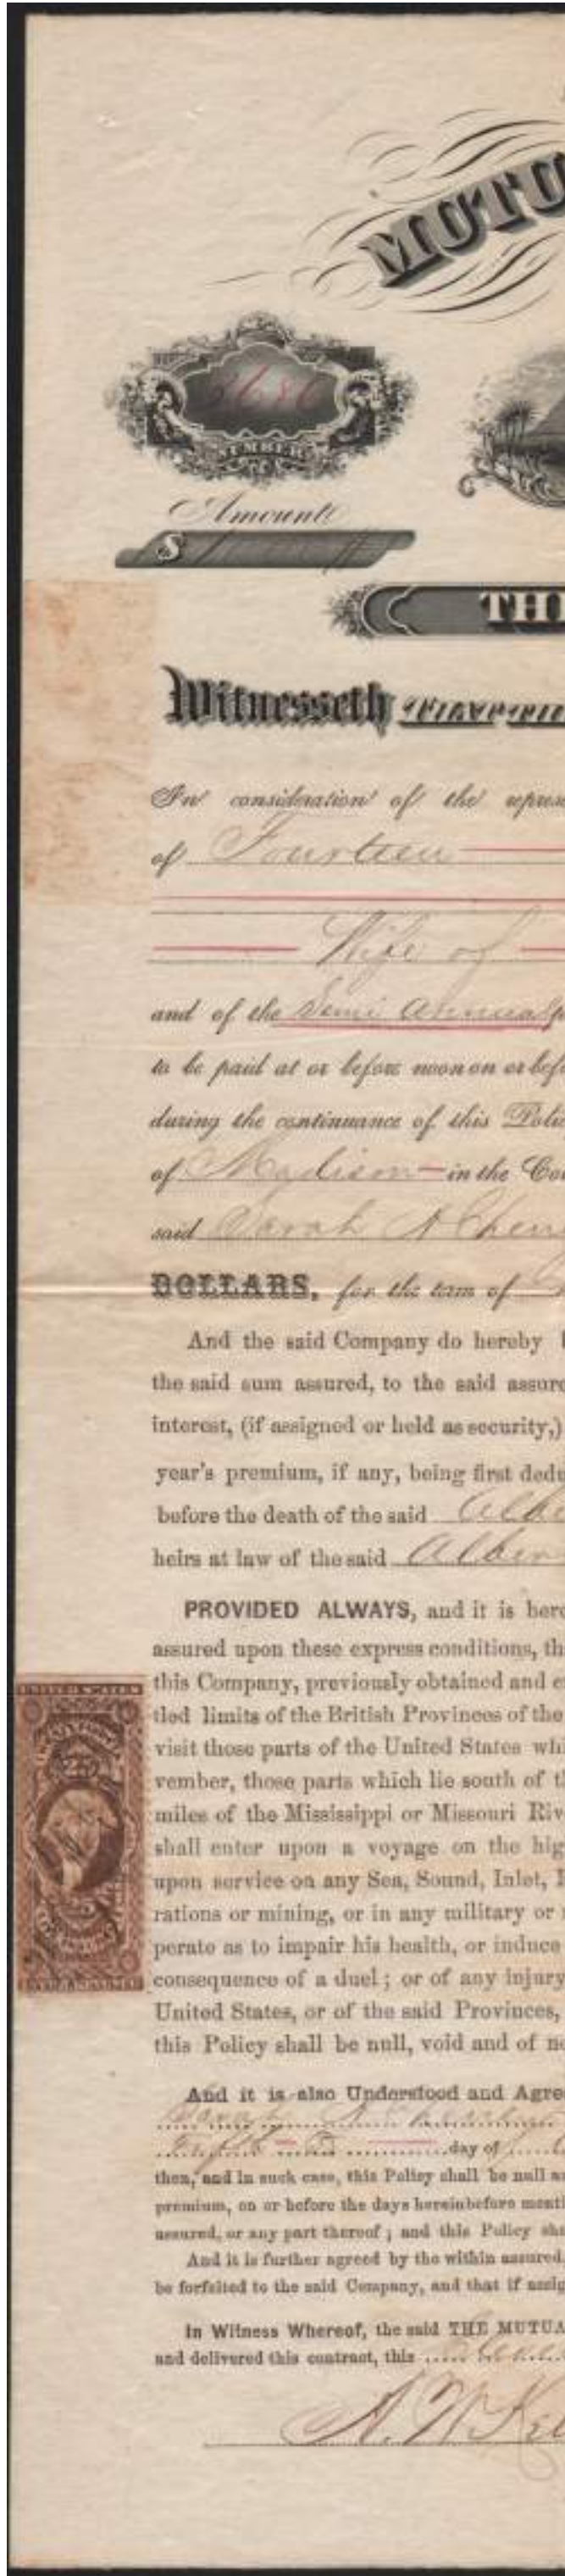 MUTU
3686
NUMBER
Amount
$
THI
Witnesseth THAT TH
In consideration of the repres
of Fourteen
Wife of
and of the Semi Annual
to be paid at or before noon on or bef
during the continuance of this Poli
of Madison in the Co
said Sarah A Chen
DOLLARS, for the term of
And the said Company do hereby
the said sum assured, to the said assure
interest, (if assigned or held as security,)
year's premium, if any, being first dedu
before the death of the said Albe
heirs at law of the said Alber
PROVIDED ALWAYS, and it is here
assured upon these express conditions, th
this Company, previously obtained and e
tled limits of the British Provinces of the
visit those parts of the United States whi
vember, those parts which lie south of t
miles of the Mississippi or Missouri Riv
shall enter upon a voyage on the hig
upon service on any Sea, Sound, Inlet,
rations or mining, or in any military or
perate as to impair his health, or induce
consequence of a duel; or of any injury
United States, or of the said Provinces,
this Policy shall be null, void and of n
UNITED STATES
25
And it is also Understood and Agre
day of
then, and in such case, this Policy shall be null a
premium, on or before the days hereinbefore menti
assured, or any part thereof; and this Policy sha
And it is further agreed by the within assured,
be forfeited to the said Company, and that if assig
In Witness Whereof, the said THE MUTUA
and delivered this contract, this
A. W. Kel